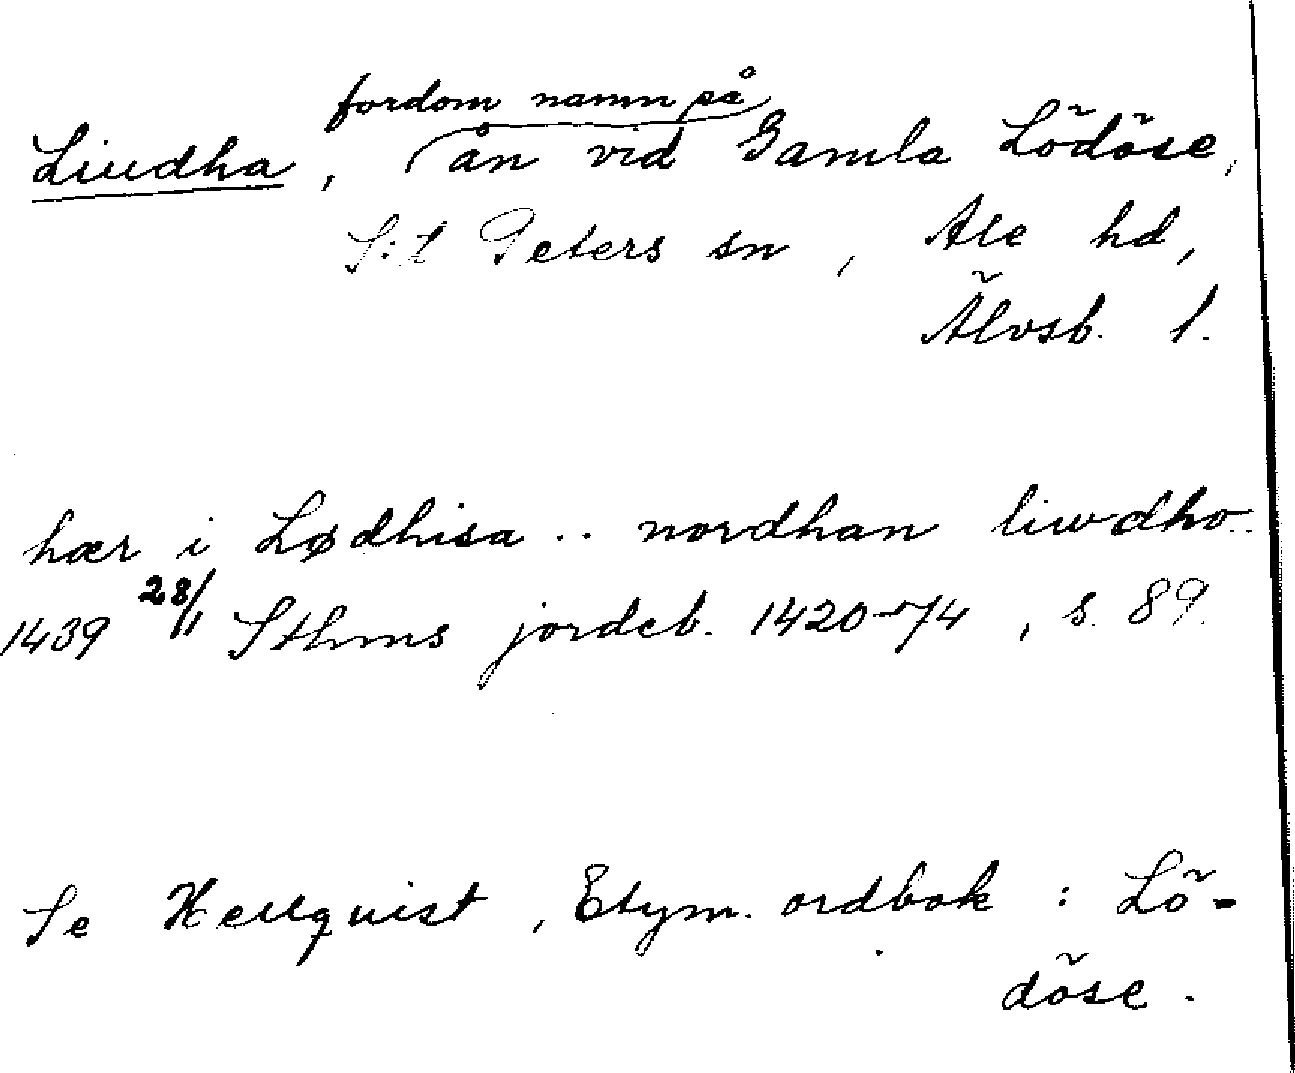 fordom namn på
Liudha, ån vid Gamla Lödöse,
S:t Peters sn, Ale hd,
Älvsb. l.
hær i Lødhisa .. nordhan liwdho..
1439 28/11 Sthms jordeb. 1420-74, s. 89.
Se Hellquist, Etym. ordbok: Lö-
döse.